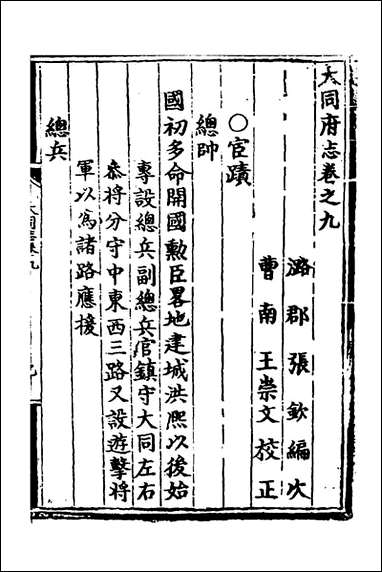 大同府志卷之九
潞郡張欽編次
曹南王崇文校正
○宦蹟
總帥
國初多命開國勲臣畧地建城洪熙以後始
專設總兵副總兵官鎮守大同左右
叅將分守中東西三路又設遊擊將
軍以爲諸路應援
總兵